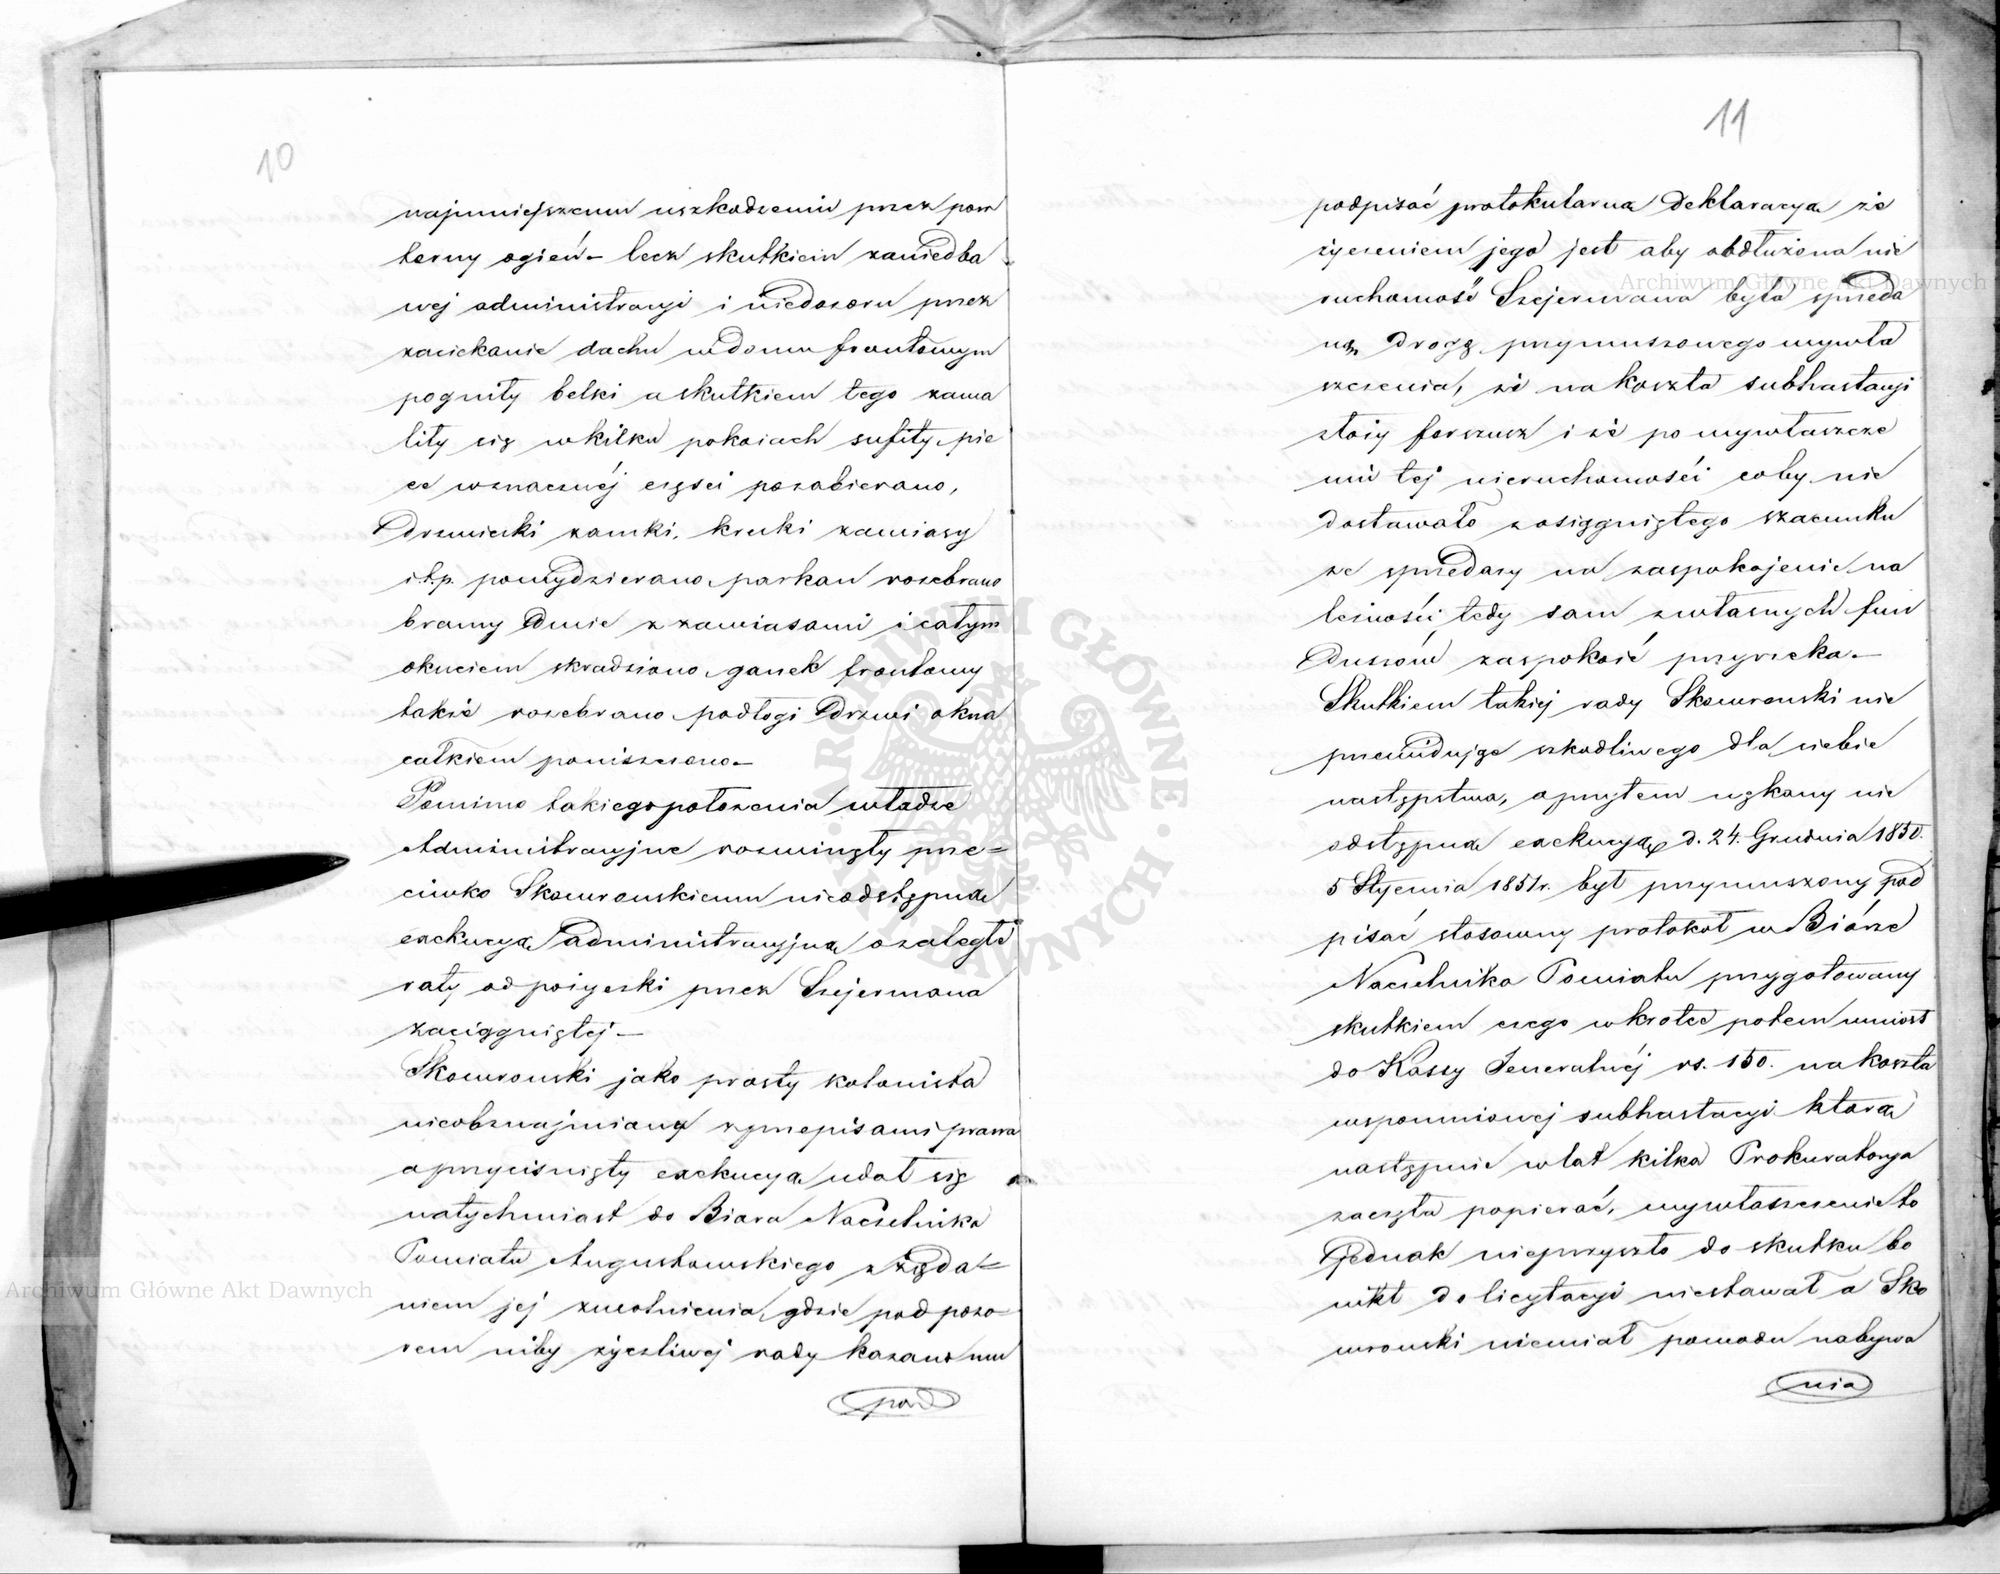 10
najmniejszemu uszkodzeniu przez pow
tórny ogień – lecz skutkiem zaniedba
nej administracyi i niedozoru przez
zaciekanie dachu w domu frontowym
pogniły belki a skutkiem tego zawa
liły się w kilku pokoiach sufity, pie
ce w znacznéj części pozabierano,
Drzwiczki zamki, kruki zawiasy
i t.p. powydzierano, parkan rozebrano
bramy dwie z zawiasami i całym
okuciem skradziono, ganek frontowy
także rozebrano podłogi Drzwi okna
całkiem poniszczono –
Pomimo takiego położenia władze
Administracyjne rozwinęły prze=
ciwko Skowronskiemu nieodstępną
exekucyą administracyjną o zaległe
raty od pożyczki przez Szejermana
zaciągniętej –
Skowronski jako prosty kolonista
nieobznajmiony z przepisami prawa
a przyciśnięty exekucyą udał się
natychmiast do Biura Naczelnika
Powiatu Augustowskiego z żąda=
niem jej zwolnienia, gdzie pod pozo=
rem niby życzliwej rady kazano mu
pod
11
podpisać protokularną Deklaracyą że
życzeniem jego jest aby obdłużona nie
ruchomość Szejermana była sprzeda
ną drogą przymuszonego wywła
szczenia, że na koszta subhastacyi
złoży forszusz i że po wywłaszcze
niu tej nieruchomości coby nie
dostawało z osiągniętego szacunku
ze sprzedaży na zaspokojenie na
leżności, tedy sam z własnych fun
Duszów zaspokoić przyrzeka –
Skutkiem takiej rady Skowronski nie
przewidując szkodliwego dla siebie
następstwa, a przytem nękany nie
odstępną exekucyą d. 24. Grudnia 1850.
5 Stycznia 1851 r. był przymuszony pod
pisać stosowny protokół w Biórze
Naczelnika Powiatu przygotowany
skutkiem czego w krotce potem wniosł
do Kassy Jeneralnéj rs. 150. na koszta
wspomnionej subhastacyi którą
następnie w lat kilka Prokuratorya
zaczęła popierać, wywłaszczenie to
jednak nieprzyszło do skutku bo
nikt do licytacyi niestawał a Sko
wronski niemiał powodu nabywa
nia
Archiwum Główne Akt Dawnych
Archiwum Główne Akt Dawnych
ARCHIWUM GŁÓWNE AKT DAWNYCH